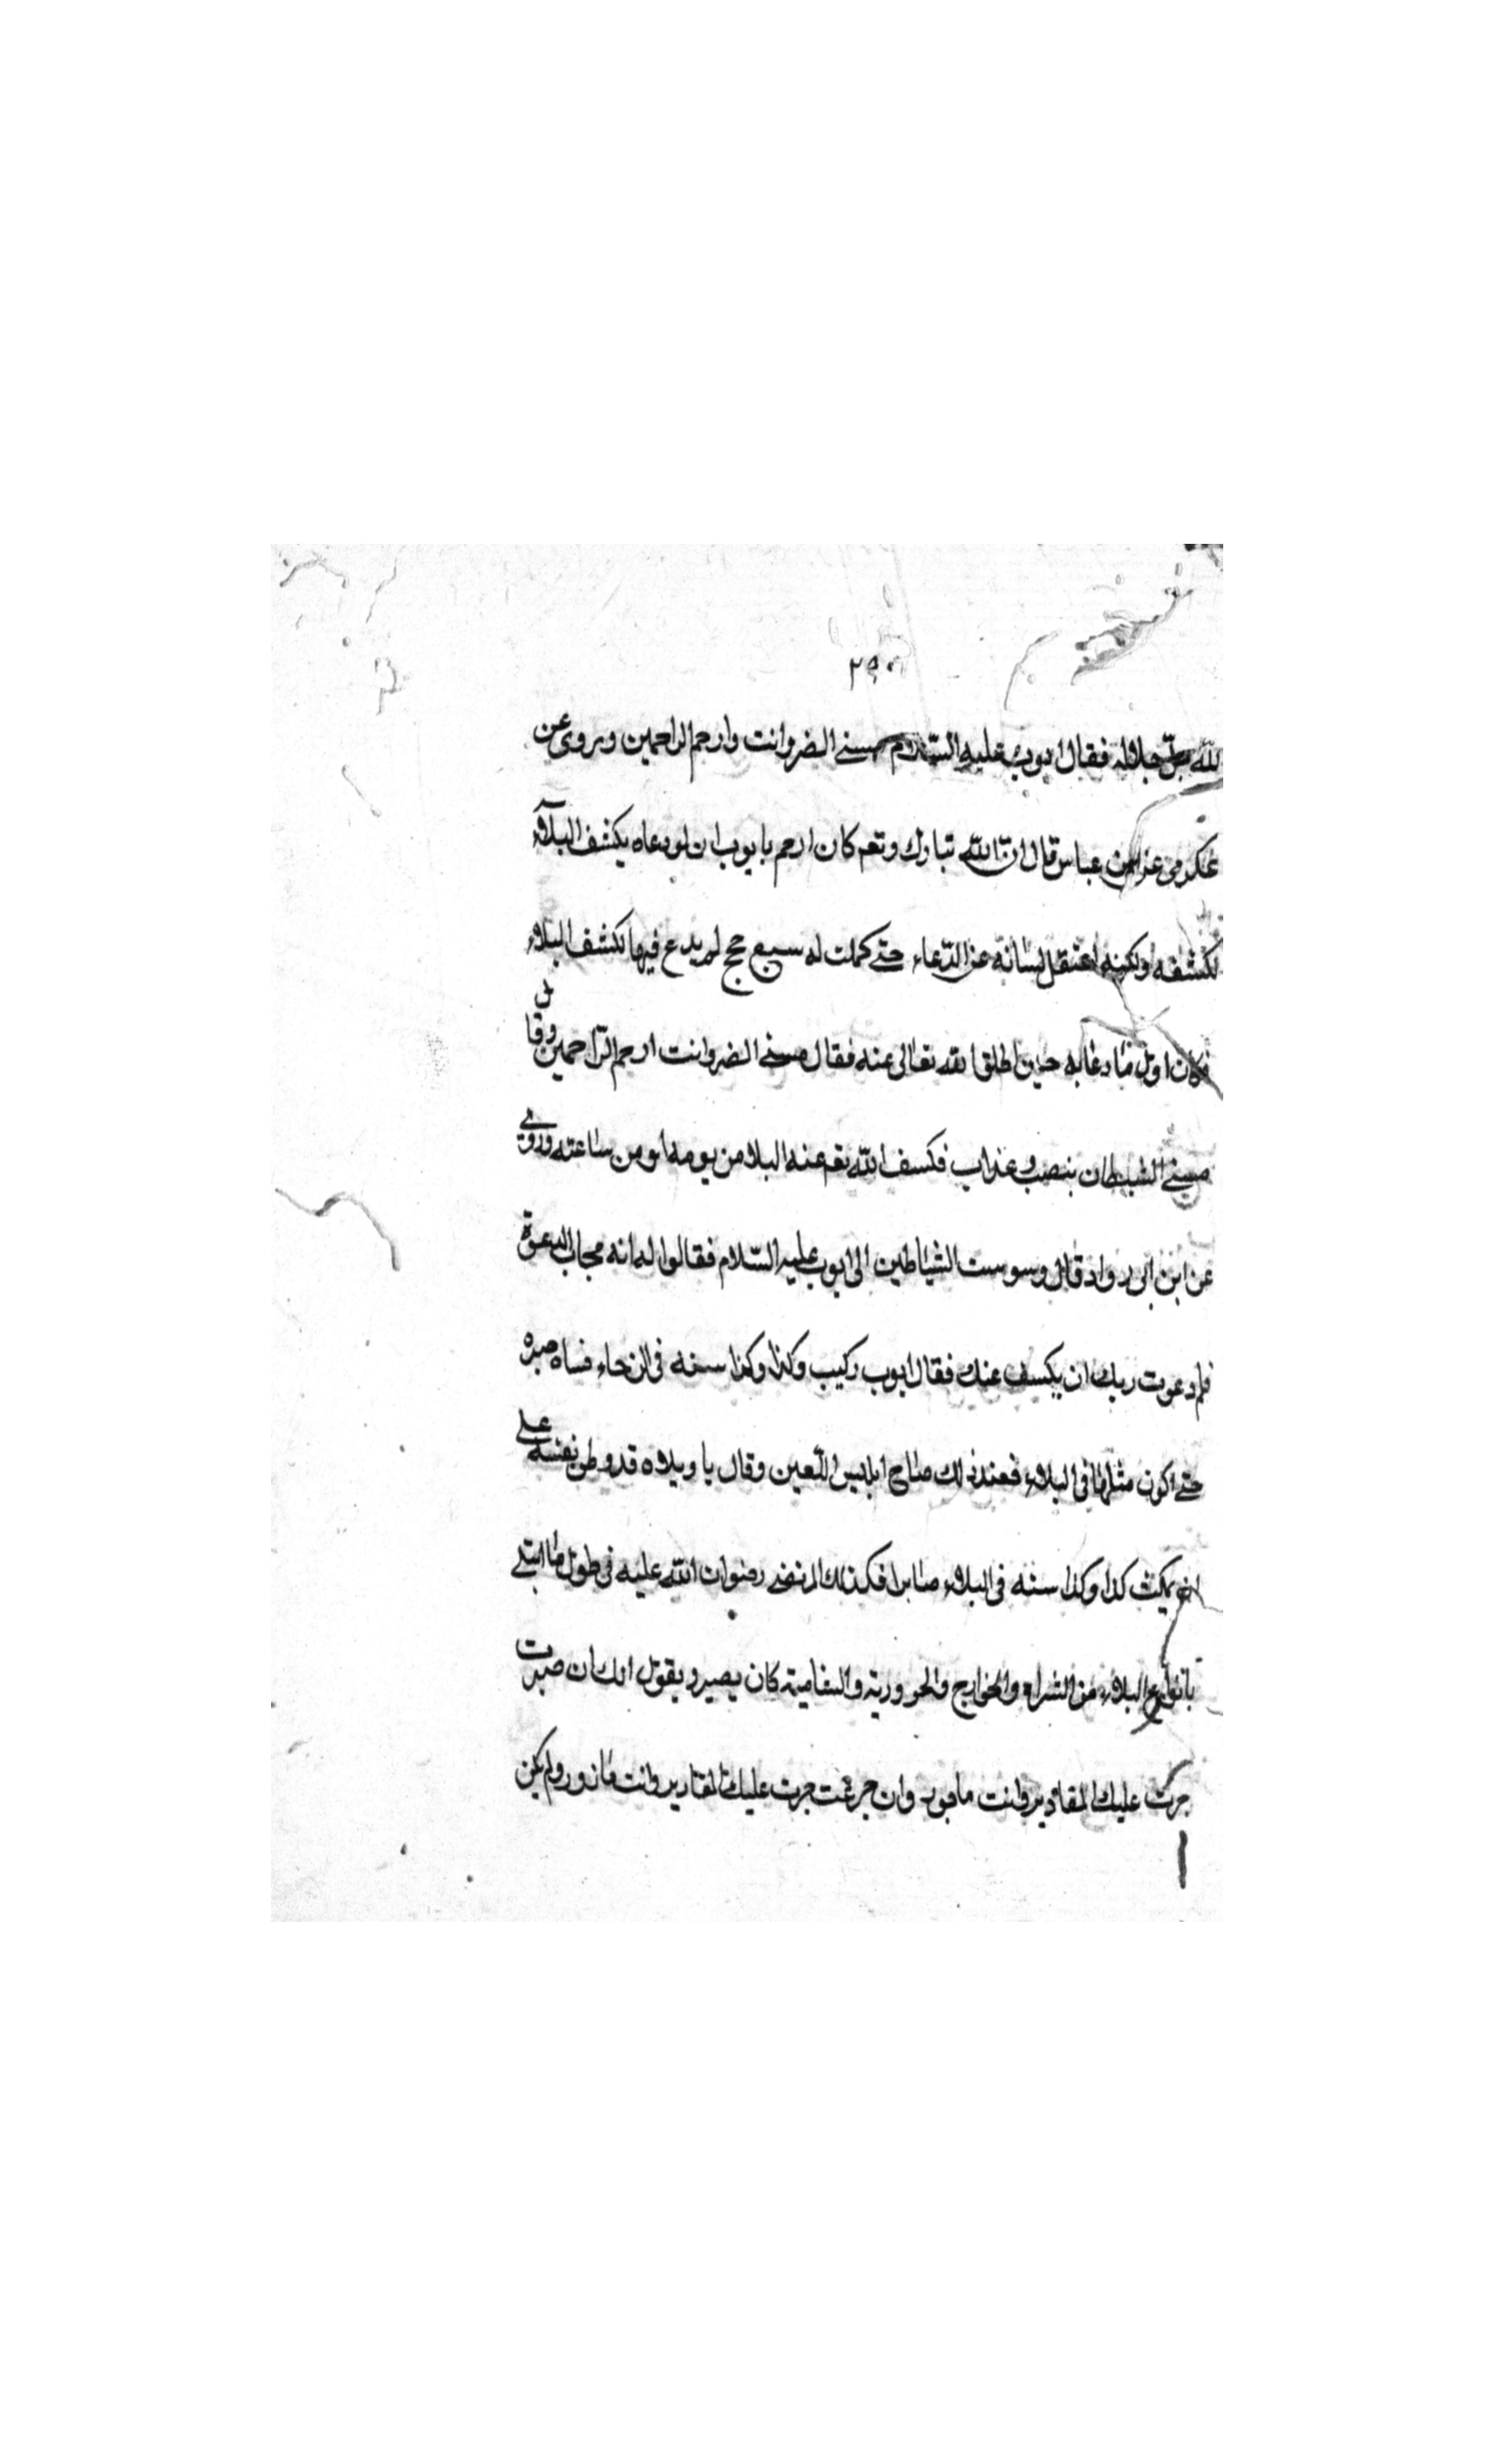 ٢٩٠
لله جل جلاله فقال ايوب عليه السّلام مسنے الضر وانت وارحم الراحمين وروى عن
عكرمى عن ابن عباس قال انّ اللّه تبارك وتعم كان ارحم بايوب ان لو دعاه يكشف البلآء
لكشفه ولكنه اعتقل لسانه عن الدّعاء حتے كملت له سبع حجج لم يدع فيها لكشف البلاء
فكان اول ما دعا به حين اطلق الله تعالى عنه فقال مسنے الضر وانت ارحم الرّاحمين وقال
مسنے الشيطان بنصب وعذاب فكسف اللّه تعم عنه البلا من يومه او من ساعته وروے
عن ابن ابى رواد قال وسوست الشياطين الى ايوب عليه السّلام فقالوا له انه مجاب الدعوة
فلم دعوت ربك ان يكسف عنك فقال ايوب ركيب وكذا وكذا سنه فى الرخاء فساه صبره
حتے اكون مثلها فى البلاء فعند ذلك صاح ابليس اللّعين وقال يا ويلاه قد وطن نفسه على
انه يمكث كذا وكذا سنه فى البلاء صابرا فكذلك المرتضے رضوان اللّه عليه فى طول ما ابتلے
بانواع البلاء من الشراه والخوارج والحرورية والسفامية كان يصير ويقول انك ان صبرت
جرت عليك المقادير وانت ماجور وان جرعت جرت عليك المقادير وانت مازور ولم يكن